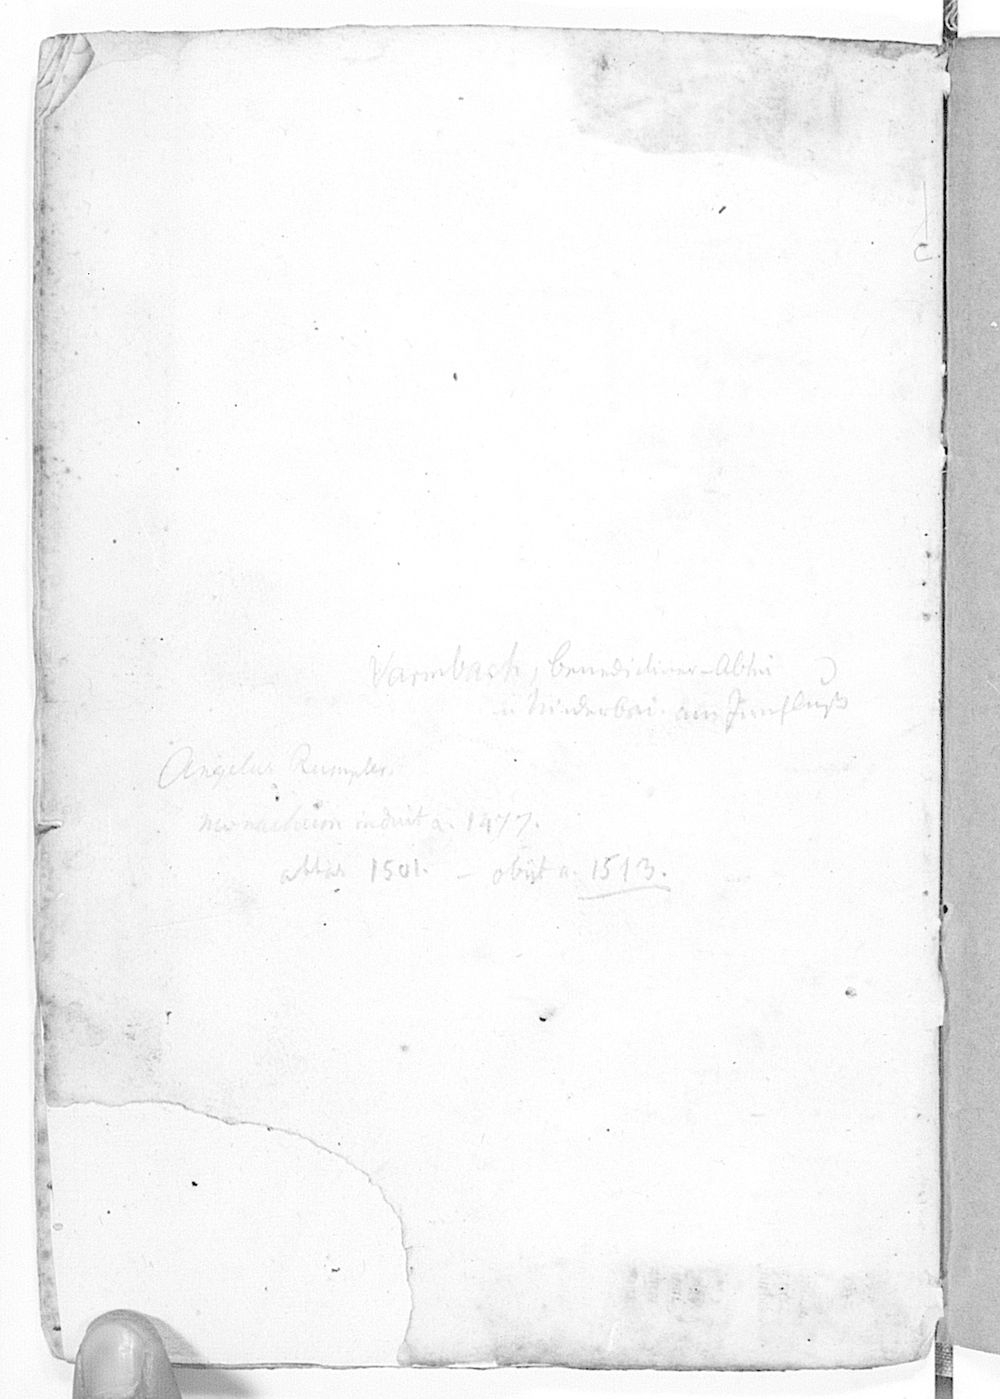 Varmbach, Benedictiner-Abtei
in Niederbai. am Innfluß
Angelus Rumpler.
monachum induit a. 1477.
abbas 1501. – obiit a. 1513.